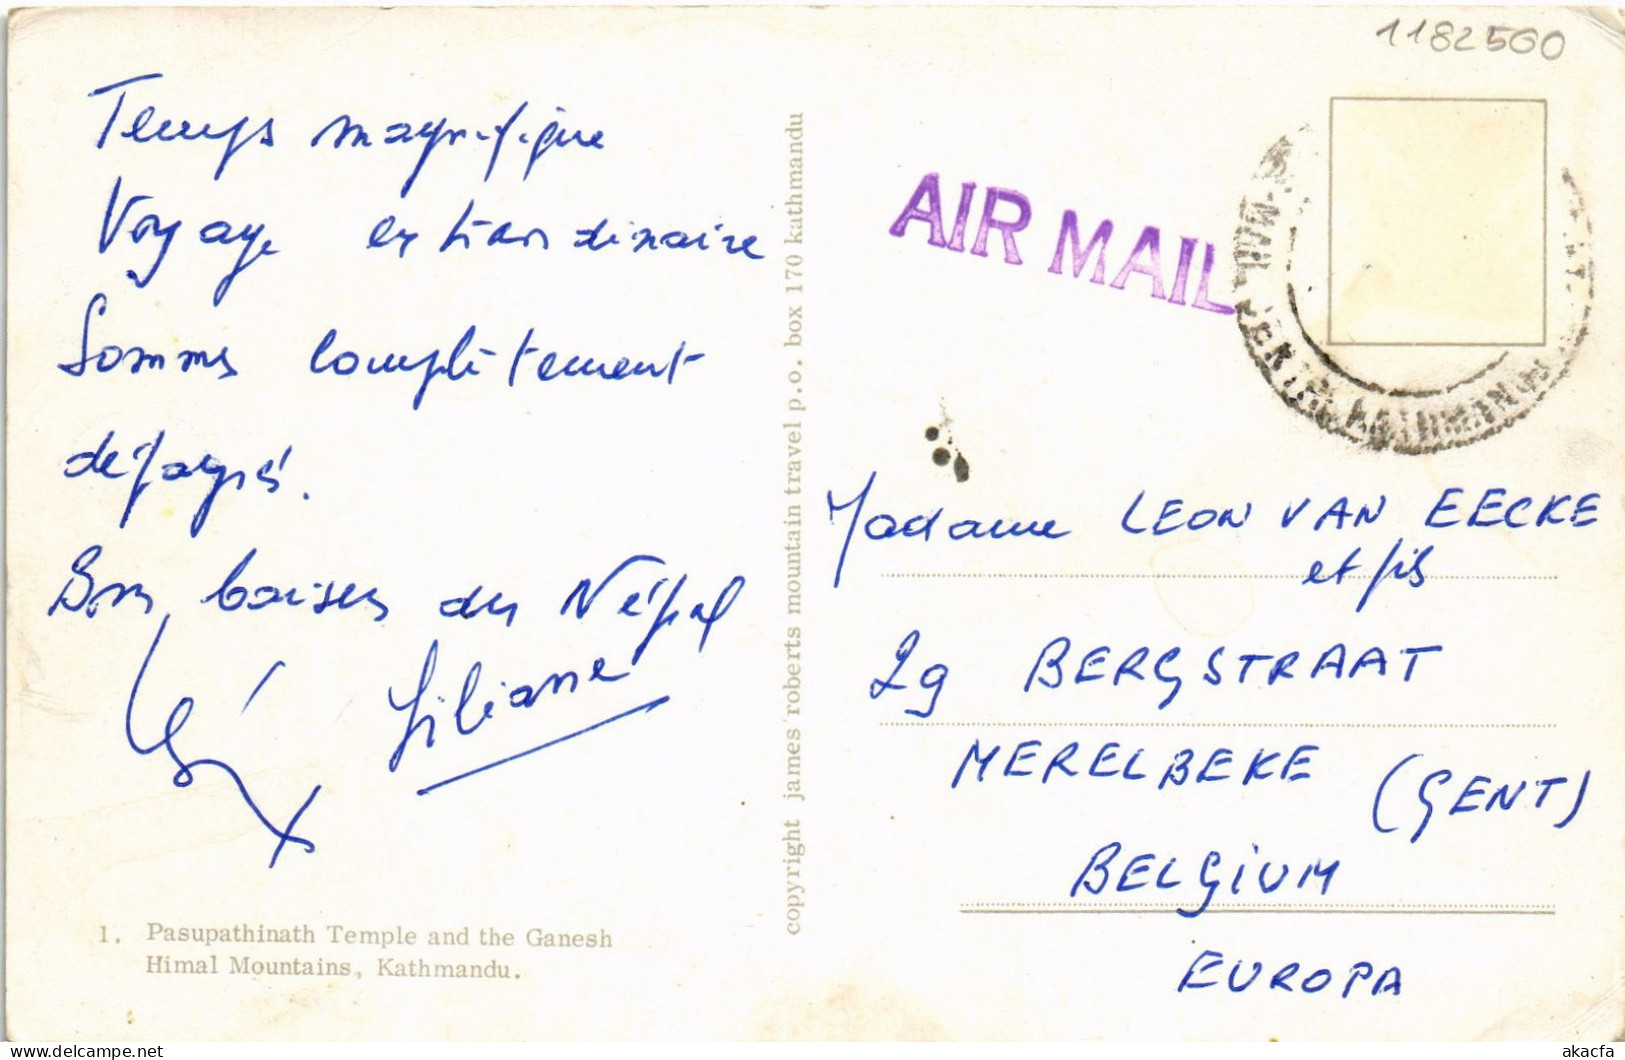 1182560
Temps magnifique
Voyage extraordinaire
Sommes complètement
défagrés.
Bons baisers du Népal
Liliane
1. Pasupathinath Temple and the Ganesh
Himal Mountains, Kathmandu.
copyright james roberts mountain travel p.o. box 170 kathmandu
AIR MAIL
Madame LEON VAN EECKE
et fils
29 BERGSTRAAT
MERELBEKE (GENT)
BELGIUM
EUROPA
akacfa